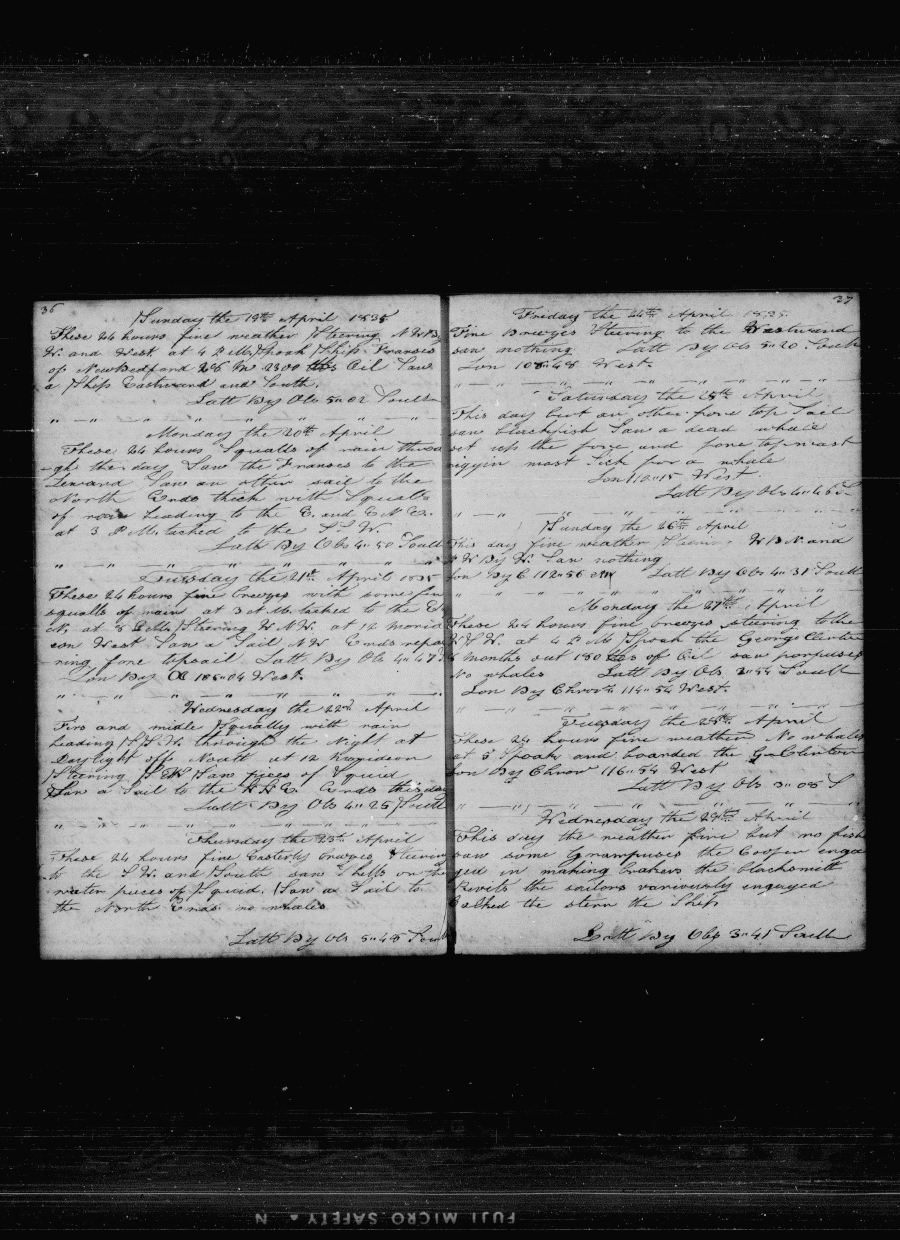 36
Sunday the 19th April 1835
These 24 hours fine weather Steering N.W.By
W. and West. at 4 P.M. Spoak Ship Franses
of NewBedford 28 M 2300 bbs Oil Saw
a Ship Eastward and South.
Latt By Obs 5"02 South
Monday the 20th April
These 24 hours Squalls of rain throu
gh the day Saw the Franses to the
Leward Saw an other sail to the
North Ends thick with Squalls
of rain heading to the E. and E.N.E.
at 3 P.M. tacked to the S.S.W.
Latt By Obs 4"50 South
Tuesday the 21st April 1835
These 24 hours fine breezes with some fine
squalls of rain at 3 A.M. tacked to the
N. at 8 Steering W.N.W. at 12 merid
eon West Saw a Sail N.W. Ends repai
ring fore topsail Latt By Ob 4"47
Lon By 106"04 West
Wednesday the 22nd April
Firs and midle Squally with rain
heading S.S.W. through the Night at
Daylight off North at 12 merideon
Steering Saw pieces of Squid
Saw a Sail to the Ends this day
Latt By Obs 4"25 South
Thursday the 23rd April
These 24 hours fine Easterly breezes Steering
to the S.W. and South saw Shells on the
water pieces of Squid. Saw a Sail to
the North Ends no whales
Latt By Obs 5"48 Sou
37
Friday the 24th April 1835
Fine Breezes Steering to the Westward
saw nothing Latt By Ob 5"20 South
Lon 108"48 West.
Saturday the 25th April
This day but an other fore top Sail
saw blackfish Saw a dead whale
set up the fore and fore topmast
riggin most Sick for a whale
Lon 110"15 West
Latt By Obs 4"46 S
Sunday the 26th April
This day fine weather Steering W.B.N. and
N W By W. Saw nothing
Lon By C 112"56 Latt By Obs 4"31 South
Monday the 27th April
These 24 hours fine breezes steering to the
W. at 4 P.M. Spoak the George Clinton
months out 180 bbs of Oil saw porpuses
No whales Latt By Obs South
Lon By Chron 114"54 West.
Tuesday the 28th April
These 24 hours fine weather No whales
at 3 Spoak and boarded the G Clinton
Lon By Chron 116"54 West
Latt By Ob 3"08 S
Wednesday the 29th April
This day the weather fine but no fish
saw some Grampuses the Cooper enga
ged in making brakers the blacksmith
Rivets the sailors variously engaged
the stern the Ship
Latt By Obs 3"41 South
FUJI MICRO SAFETY N